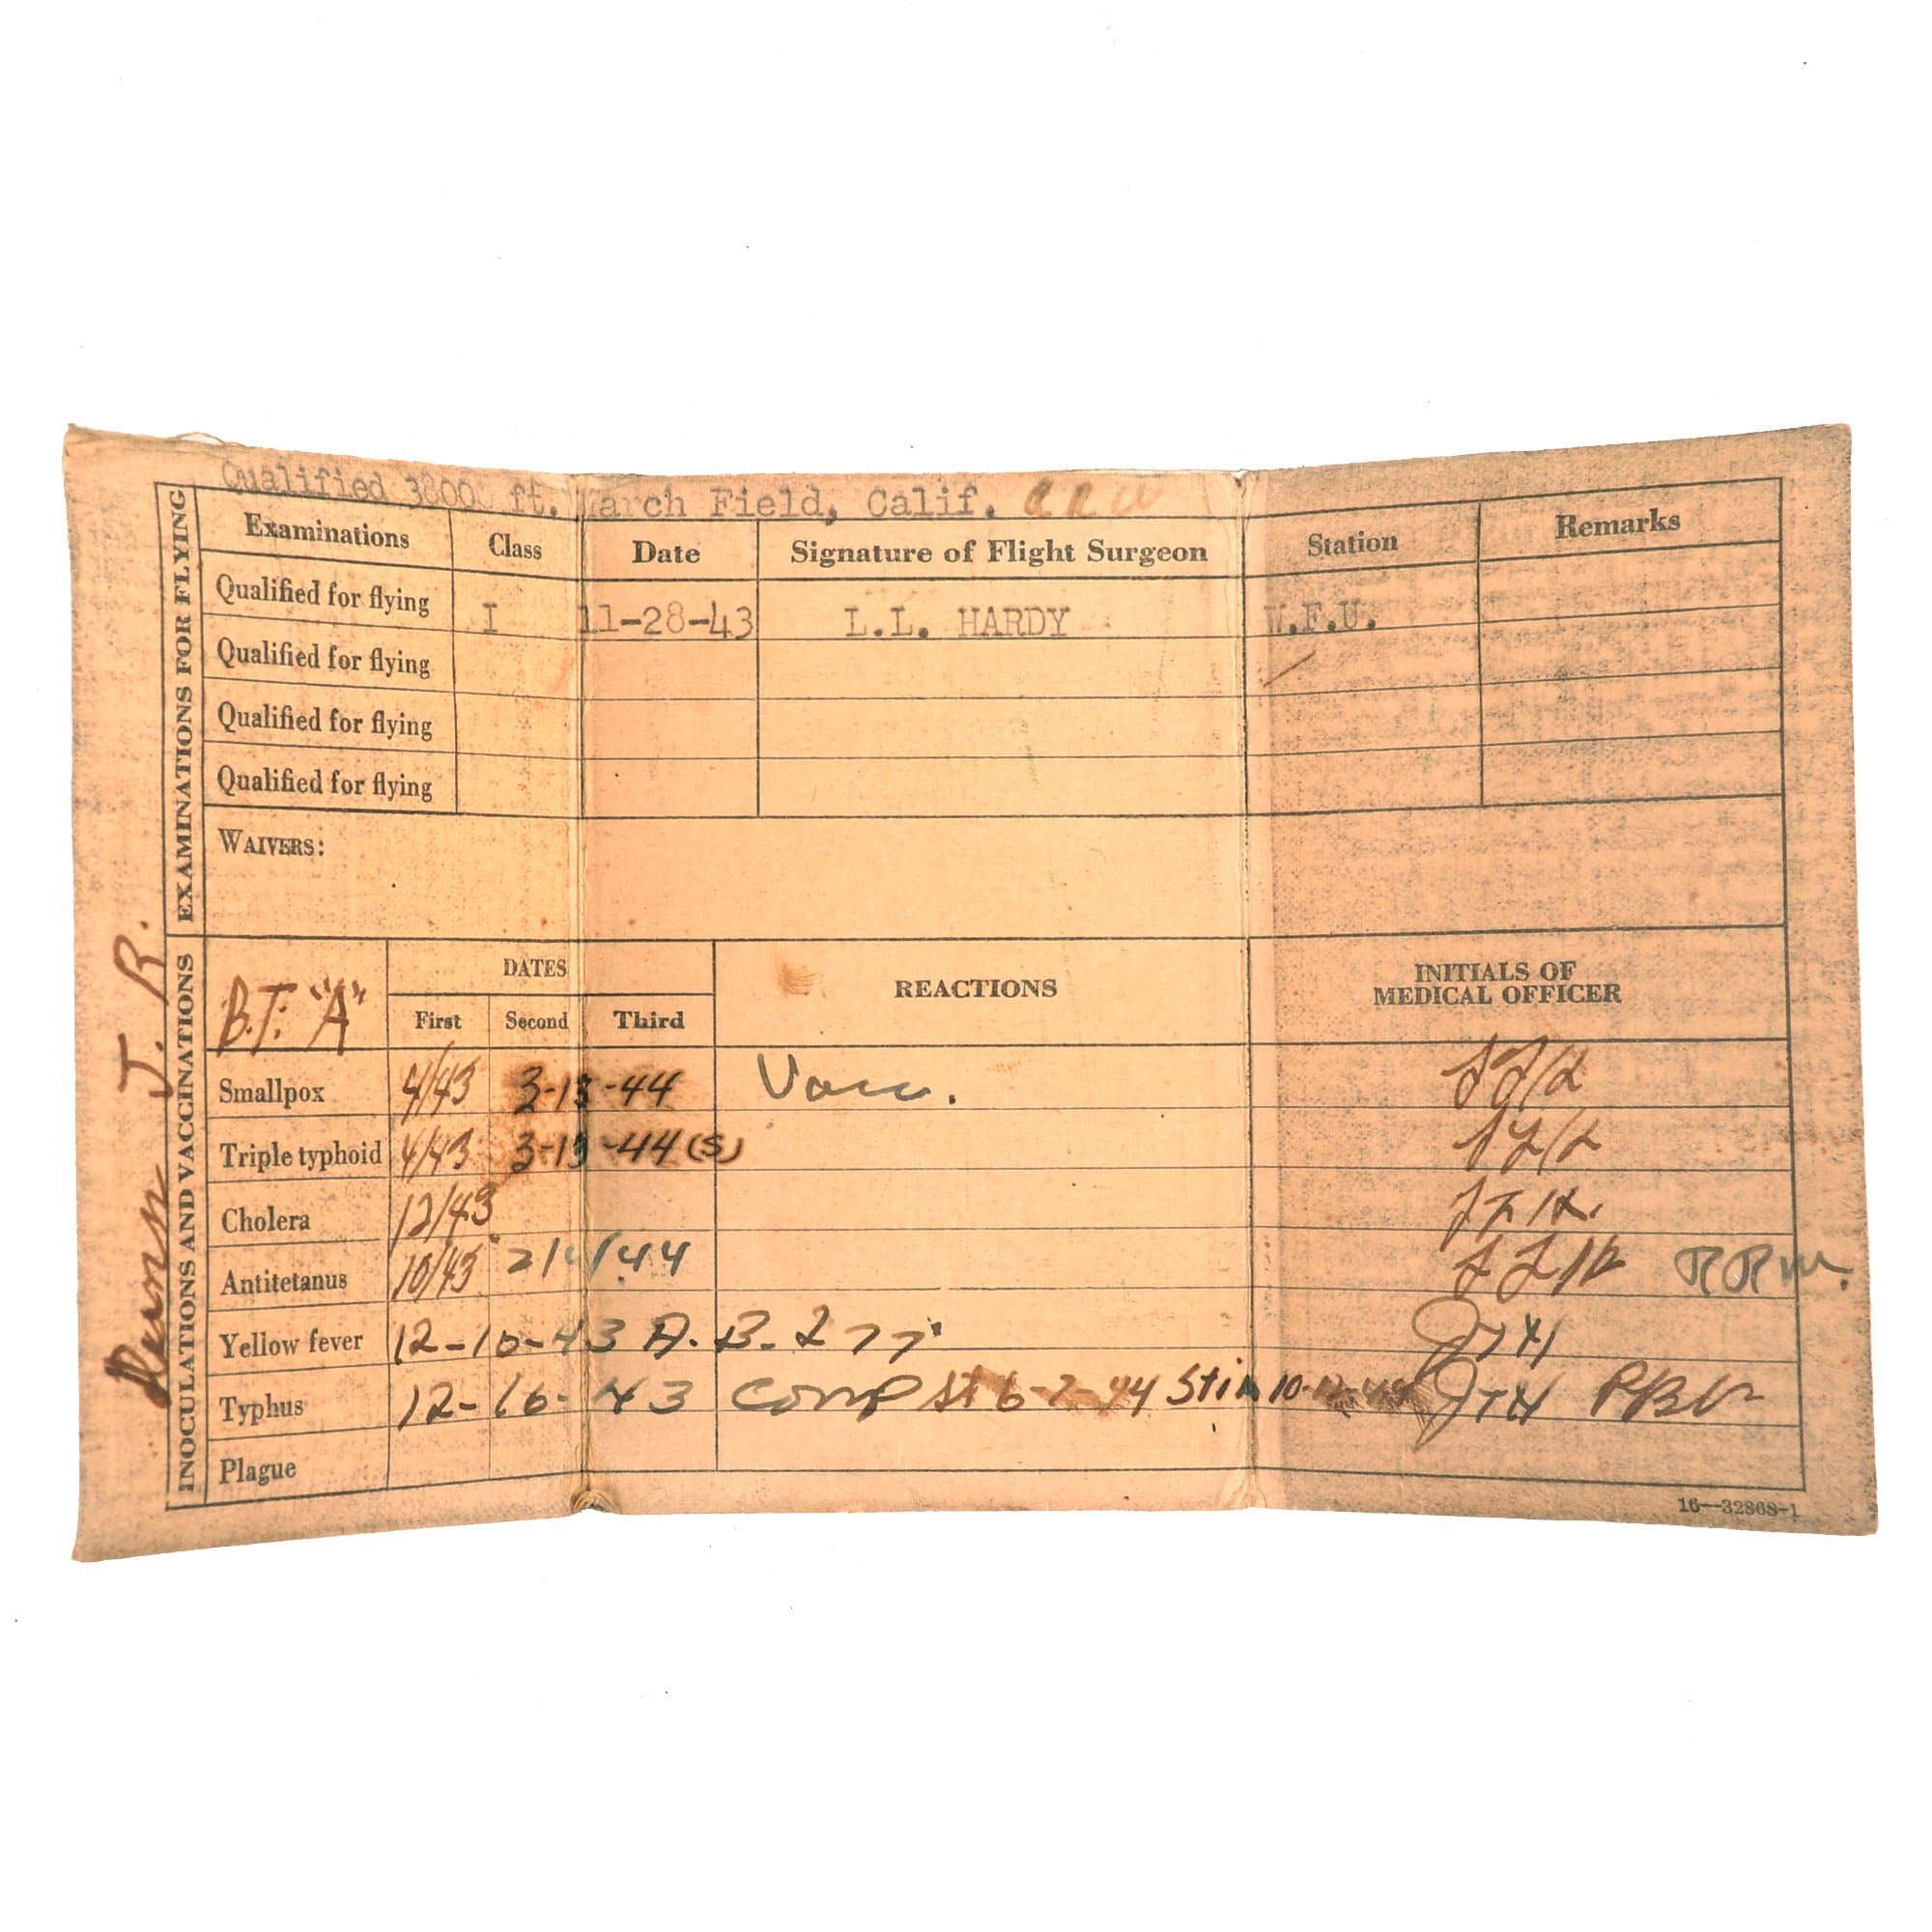 Qualified 38000 ft. March Field, Calif.
EXAMINATIONS FOR FLYING
Examinations Class Date Signature of Flight Surgeon Station Remarks
Qualified for flying I 11-28-43 L.L. HARDY W.F.U.
Qualified for flying
Qualified for flying
Qualified for flying
WAIVERS:
J. R.
INOCULATIONS AND VACCINATIONS
B.T. "A" DATES REACTIONS INITIALS OF
MEDICAL OFFICER
First Second Third
Smallpox 4/43 3-13-44
Triple typhoid 4/43 3-13-44 (S)
Cholera 12/43
Antitetanus 10/43 2/4/44 RRW.
Yellow fever 12-10-43 A.B. 277
Typhus 12-10-43 Comp St 6-7-44 Stim JTH
Plague
16—32868-1